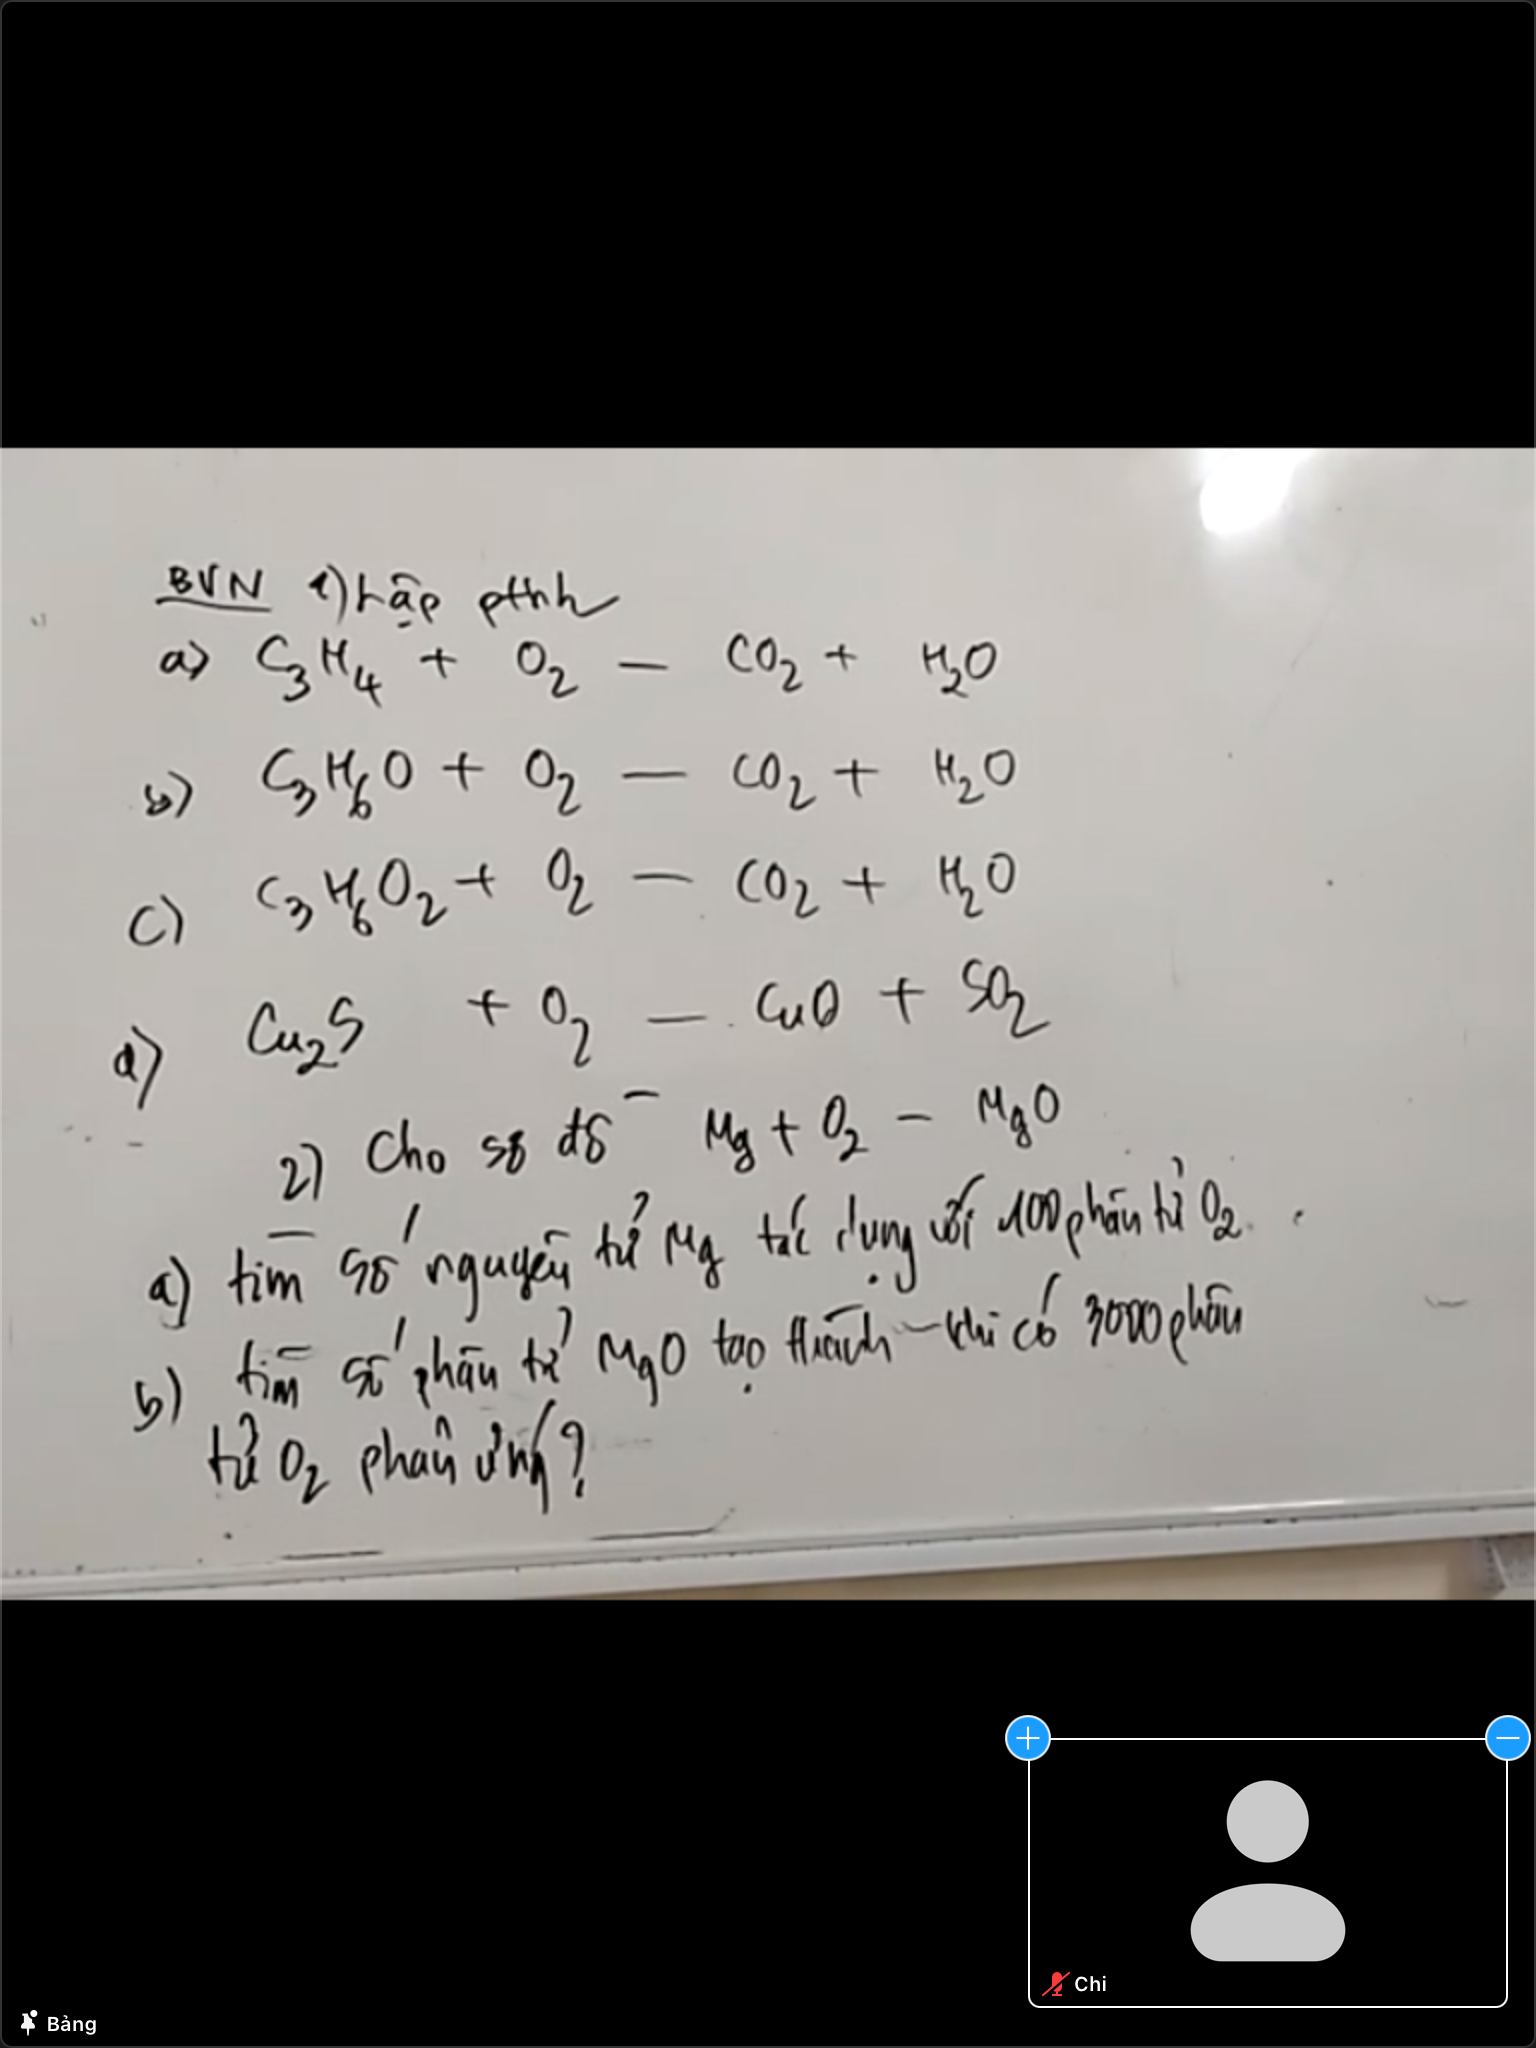 BVN 1) Lập pthh
a) C₃H₄ + O₂ — CO₂ + H₂O
b) C₃H₆O + O₂ — CO₂ + H₂O
c) C₃H₆O₂ + O₂ — CO₂ + H₂O
d) Cu₂S + O₂ — CuO + SO₂
2) Cho sơ đồ Mg + O₂ — MgO
a) tìm số nguyên tử Mg tác dụng với 100 phân tử O₂.
b) tìm số phân tử MgO tạo thành khi có 3000 phân
tử O₂ phản ứng?
Chi
Bảng